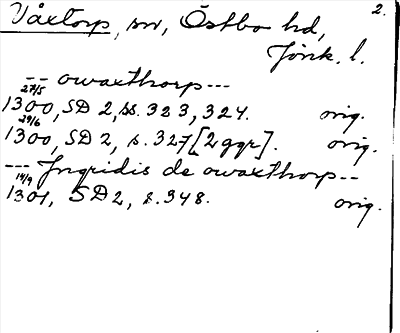 2.
Våxtorp, sn, Östbo hd,
Jönk. l.
-- owaxthorp ---
27/5
1300, SD 2, ss. 323, 324. orig.
29/6
1300, SD 2, s. 327 [2 ggr]. orig.
--- Jngridis de owaxthorp --
14/9
1301, SD 2, s. 348. orig.